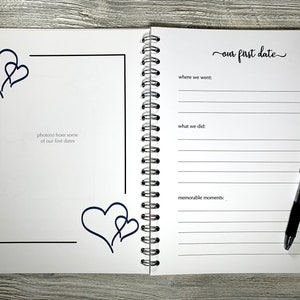 photo(s) from some
of our first dates
our first date
where we went:
what we did:
memorable moments: